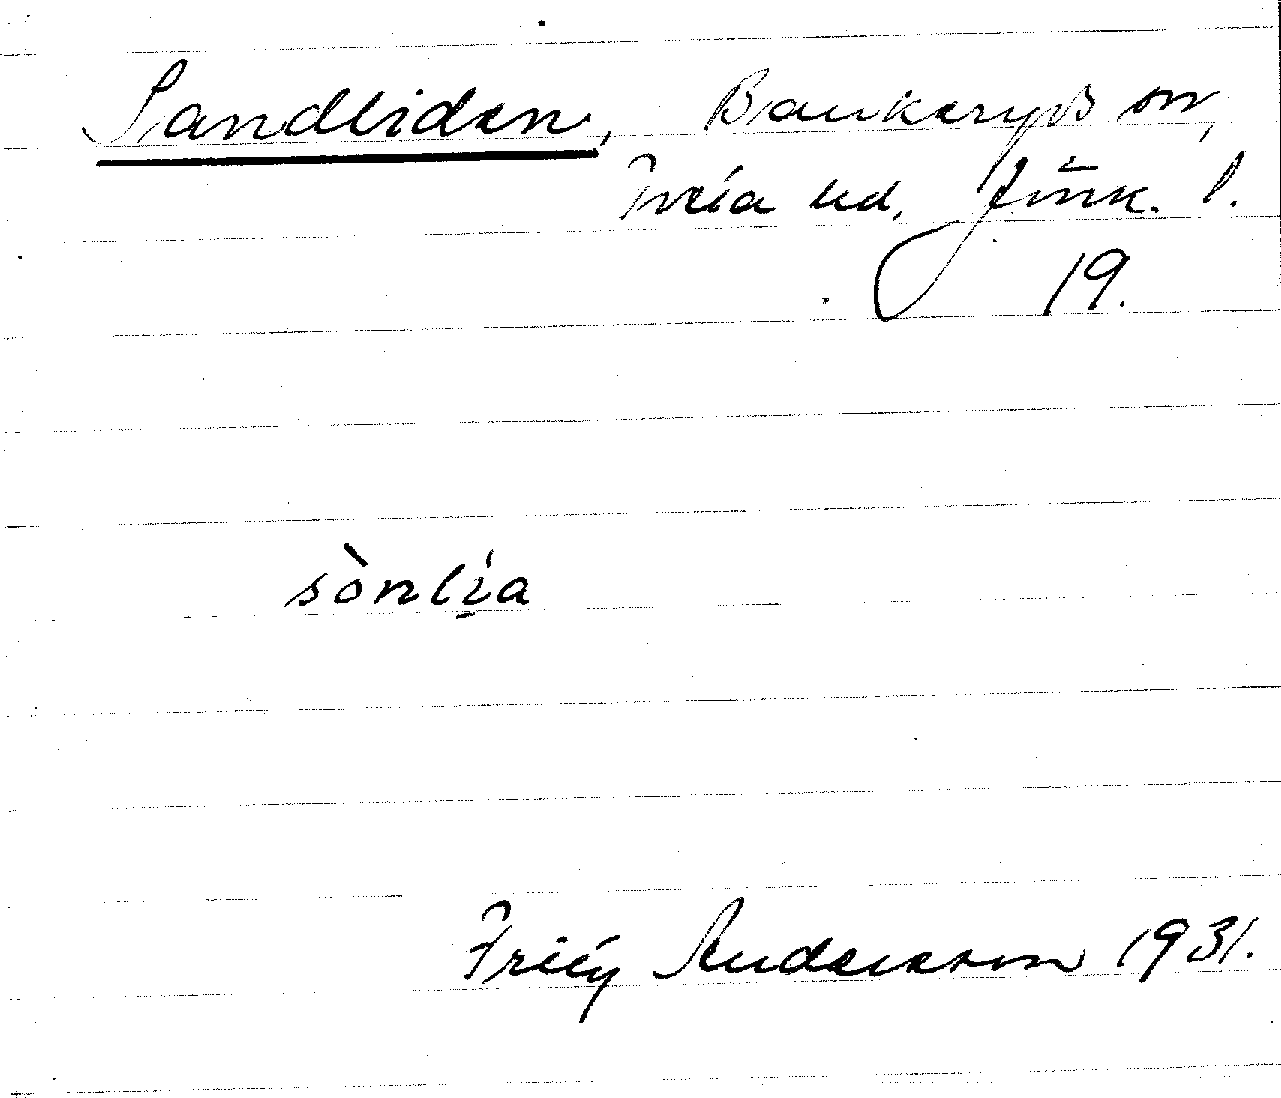 Sandliden, Bankeryds sn,
Tveta hd, Jönk. l.
19.
sònli̱a
Fritz Andersson 1931.